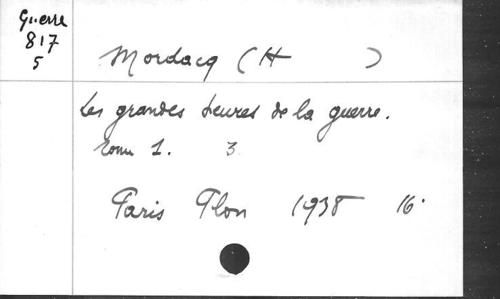 Guerre
817
5
Mordacq (H )
Les grandes heures de la guerre.
Tome 1. 3
Paris Plon 1938 16°